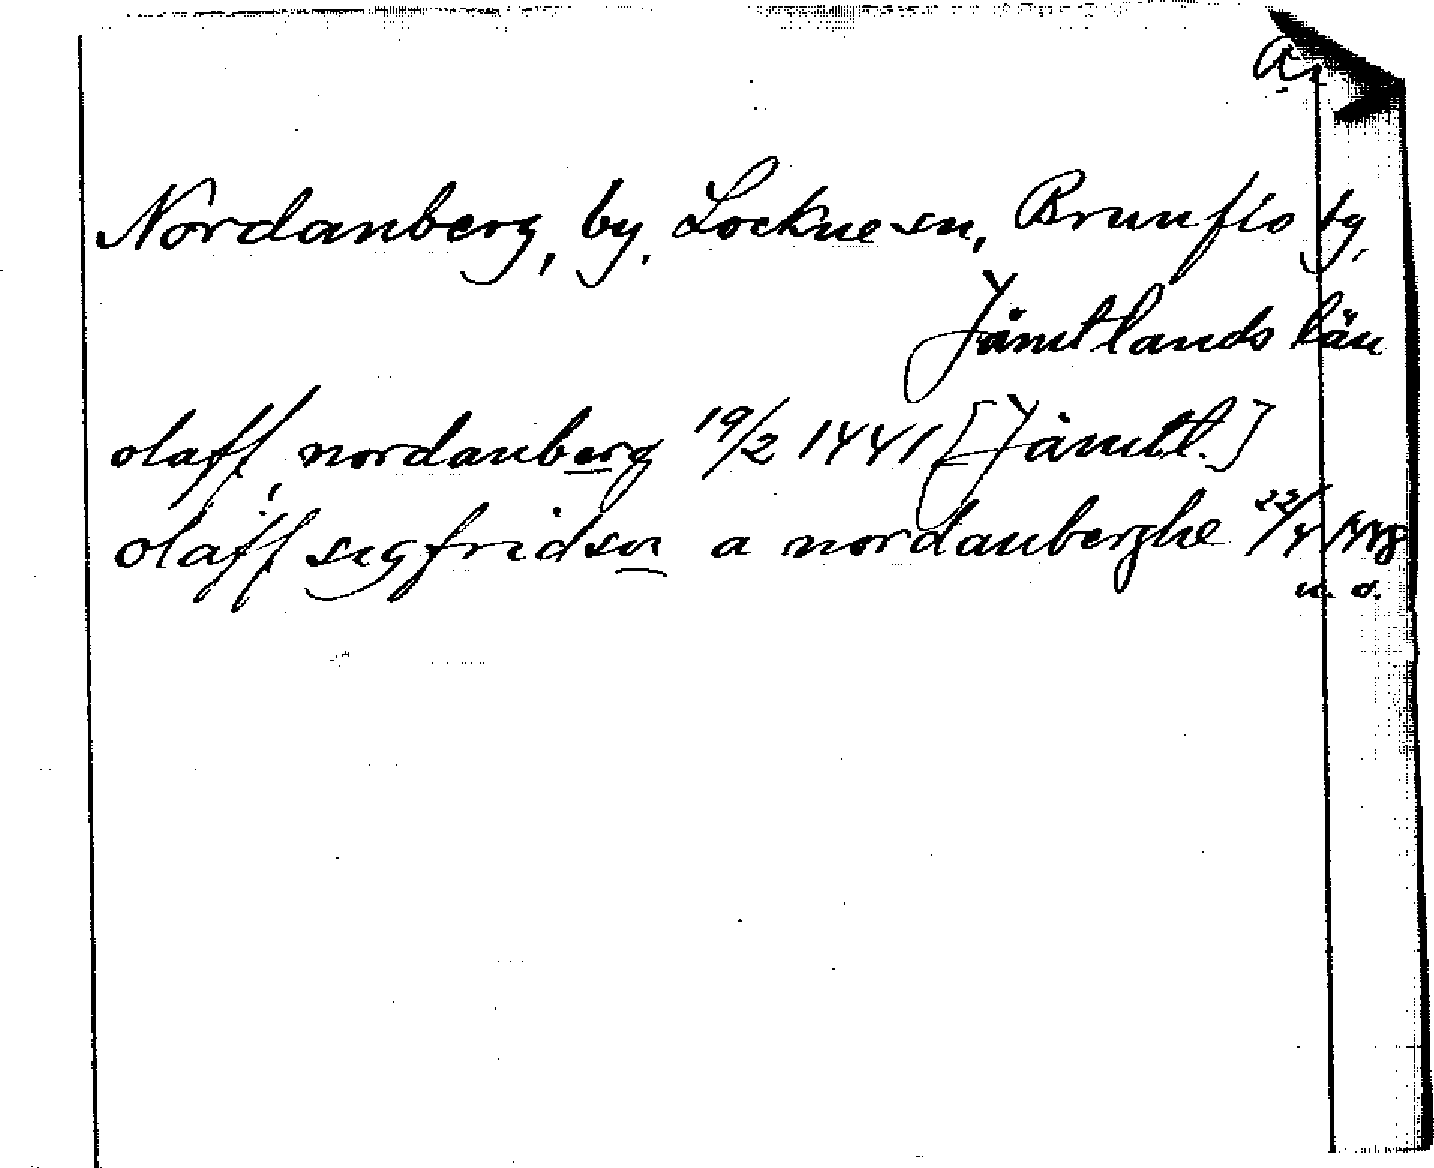 Nordanberg, by, Lockne sn, Brunflo tg,
Jämtlands län
olaff, nordanberg 19/2 1441 [Jämtl.]
olaff sigfridsn a nordanberghe 22/4
u. o.